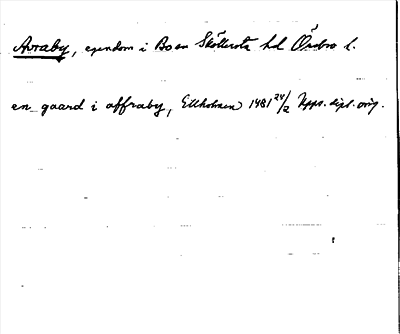 Avraby, egendom i Bo sn Sköllersta hd Örebro l.
en gaard i affraby, Ettholmen 1481 24/2 Upps. dipl. orig.